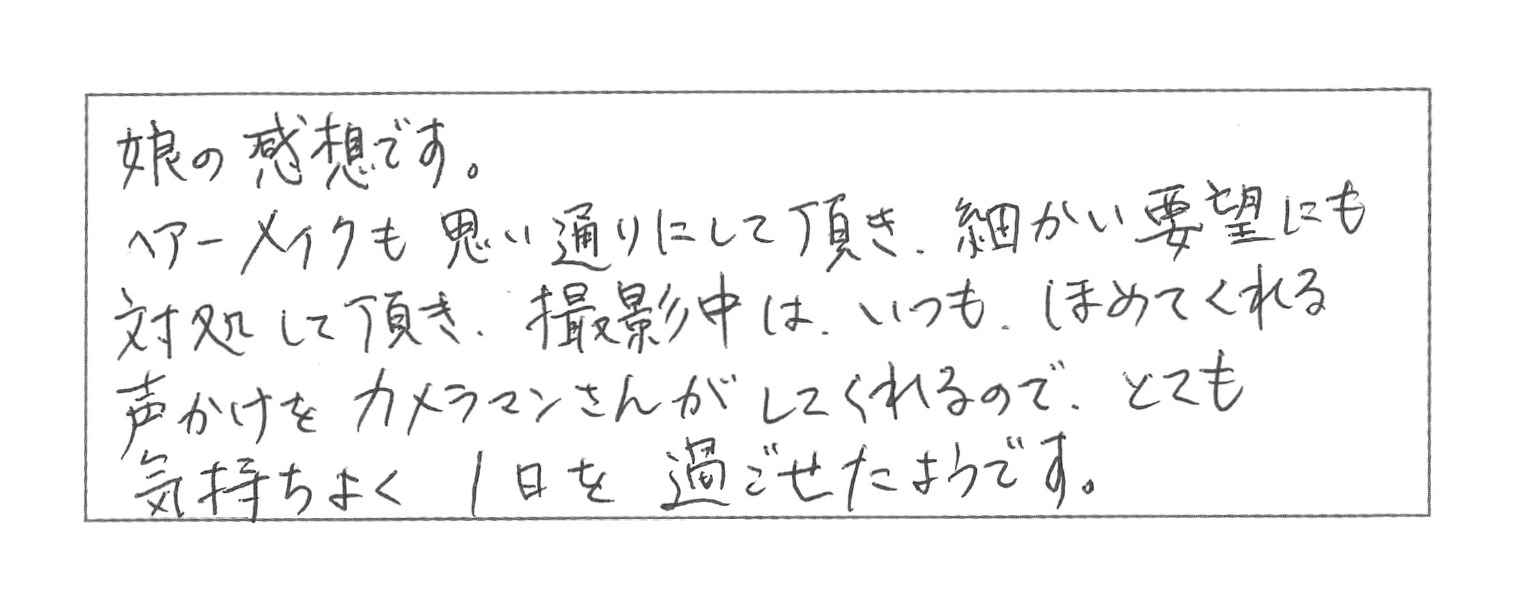 娘の感想です。
ヘアーメイクも思い通りにして頂き、細かい要望にも
対処して頂き、撮影中は、いつも、ほめてくれる
声かけをカメラマンさんがしてくれるので、とても
気持ちよく 1日を過ごせたようです。